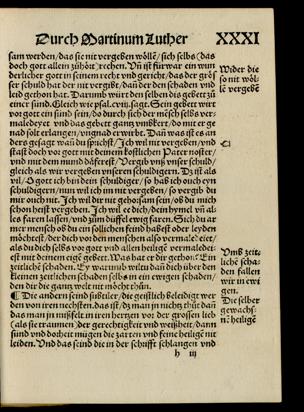 Durch Martinum Luther
XXXI
sam werden/das sie nit vergeben wöllē/sich selbs (das
doch gott allein zůhört) rechen. Vñ ist fürwar ein wun
derlicher gott in seinem recht und gericht/das der grös
ser schuld hat der nit vergibt/dañ der den schaden und
leid gethon hat. Darumb würt den selben dis gebett zů
einer sünd. Gleich wie psal.cviij.sagt. Sein gebett wirt
vor gott ein sünd sein/do durch sich der mēsch selbs ver
maledeyet und das gebett gantz
nad solt erlangen/ungnad erwirbt. Dañ was ist es an
ders gesagt wañ du sprichst/Ich wil nit vergeben/und
stast doch vor gott mit deinem köstlichen Pater noster/
und mit dem mund
gleich als wir vergeben unseren schuldigern. Dz ist als
vil/O gott ich bin dein schuldiger/so hab ich ouch eyn
schuldigern/nun wil ich im nit vergeben/so vergib du
mir ouch nit. Ich wil dir nit gehorsam sein/ob du mich
schon heist vergeben. Ich wil ee dich/dein hymel vñ al
les faren lassen/und zům düffel ewig faren. Sich du ar
mer mensch ob du ein solchen feind habest oder leyden
möchtest/der dich vor den menschen also vermaledeiet/
als du dich selbs vor gott und allen heiligē vermaledei
est mit deinem eigē gebett. Was hat er dir gethon? Ein
zeitlichē schaden. Ey warumb wiltu dañ dich über den
kleinen zeitlichen schaden selbs in ein ewigen schaden/
den dir die gantz welt nit möcht thůn.
¶ Die andern seind subtiler/die geistlich beleidigt wer
den von iren nechsten. Das ist/dz man in nichts thůt dañ
das man in mißfelt in iren hertzen vor der grossen lieb
(als sie traumen) der gerechtigkeit und weißheit/dann
sünd und dorheit mügen die zarten und feine heiligē nit
leiden. Und das seind die in der schrifft schlangen und
h iij
Wider die
so nit wöl
lē vergebē
Umb zeit
lichē scha
den fallen
wir in ewi
gen.
Die selber
gewachs
nē heiligē